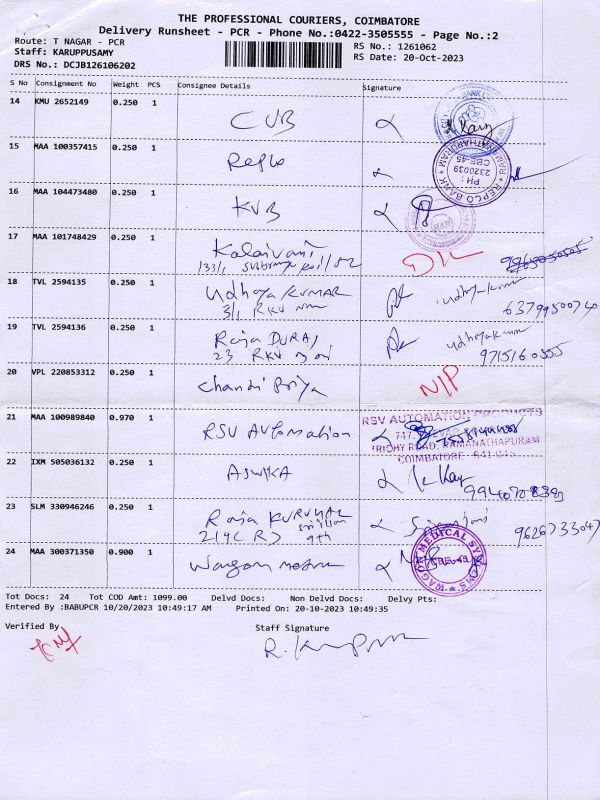 THE PROFESSIONAL COURIERS, COIMBATORE
Delivery Runsheet - PCR - Phone No.:0422-3505555 - Page No.:2
Route: T NAGAR - PCR
RS No.: 1261062
Staff: KARUPPUSAMY
RS Date: 20-Oct-2023
DRS No.: DCJB126106202
S No Consignment No Weight PCS Consignee Details Signature
14 KMU 2652149 0.250 1
CUB
15 MAA 100357415 0.250 1
Repco
RAMANATHAPURAM
PH : 2320039
CBE-45
REPCO BANK
16 MAA 104473480 0.250 1
KVB
17 MAA 101748429 0.250 1
Kalaivani
133/1
DL
18 TVL 2594135 0.250 1
Udhaya KUMAR
3/1 RKV
udhayakumar
6379950074
19 TVL 2594136 0.250 1
Raja DURAI
23 RKV
udhayakumar
9715160555
20 VPL 220853312 0.250 1
Chandi Priya
N/P
21 MAA 100989840 0.970 1
RSV Automation
RSV AUTOMATION PRODUCTS
TRICHY ROAD, RAMANATHAPURAM
COIMBATORE - 641 045
22 IXM 505036132 0.250 1
ASWIKA
23 SLM 330946246 0.250 1
Raja KURUMAL
9th
9626733047
24 MAA 300371350 0.900 1
WAGON MEDICAL SYSTEMS
Tot Docs: 24 Tot COD Amt: 1099.00 Delvd Docs: Non Delvd Docs: Delvy Pts:
Entered By :BABUPCR 10/20/2023 10:49:17 AM Printed On: 20-10-2023 10:49:35
Verified By
Staff Signature